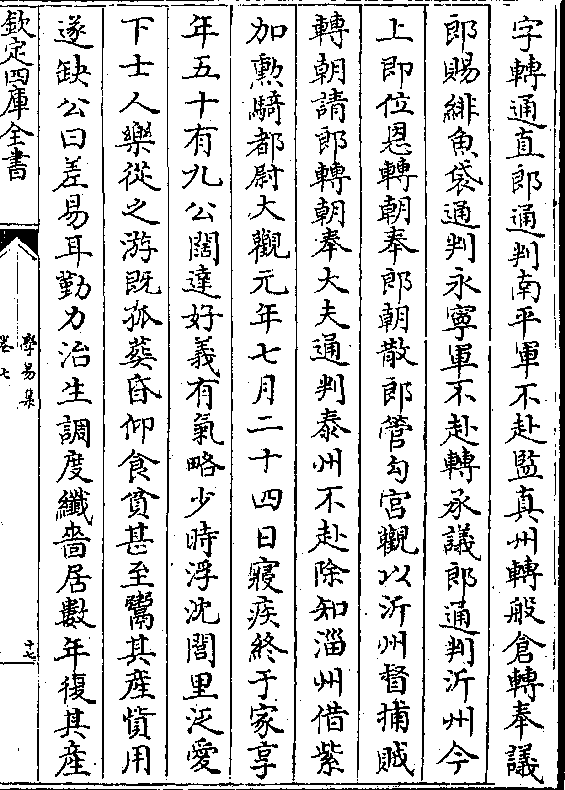 字轉通直郎通判南平軍不赴監真州轉般倉轉奉議
郎賜緋魚袋通判永寧軍不赴轉承議郎通判沂州今
上即位恩轉朝奉郎朝散郎管勾宮觀以沂州督捕賊
轉朝請郎轉朝奉大夫通判泰州不赴除知淄州借紫
加勲騎都尉大觀元年七月二十四日寢疾終于家享
年五十有九公闊達好義有氣略少時浮沈閭里泛愛
下士人樂從之游既孤葬昏仰食貧甚至鬻其產憤用
遂缺公曰差易耳勤力治生調度纖嗇居數年復其產
欽定四庫全書
學易集
卷七